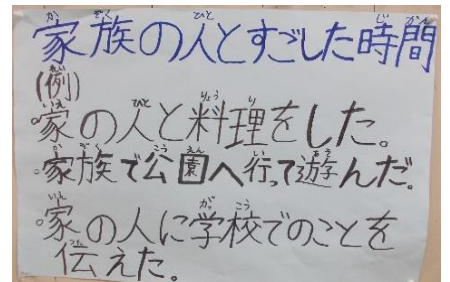 家族の人とすごした時間
(例)
。家の人と料理をした。
。家族で公園へ行って遊んだ。
。家の人に学校でのことを
伝えた。